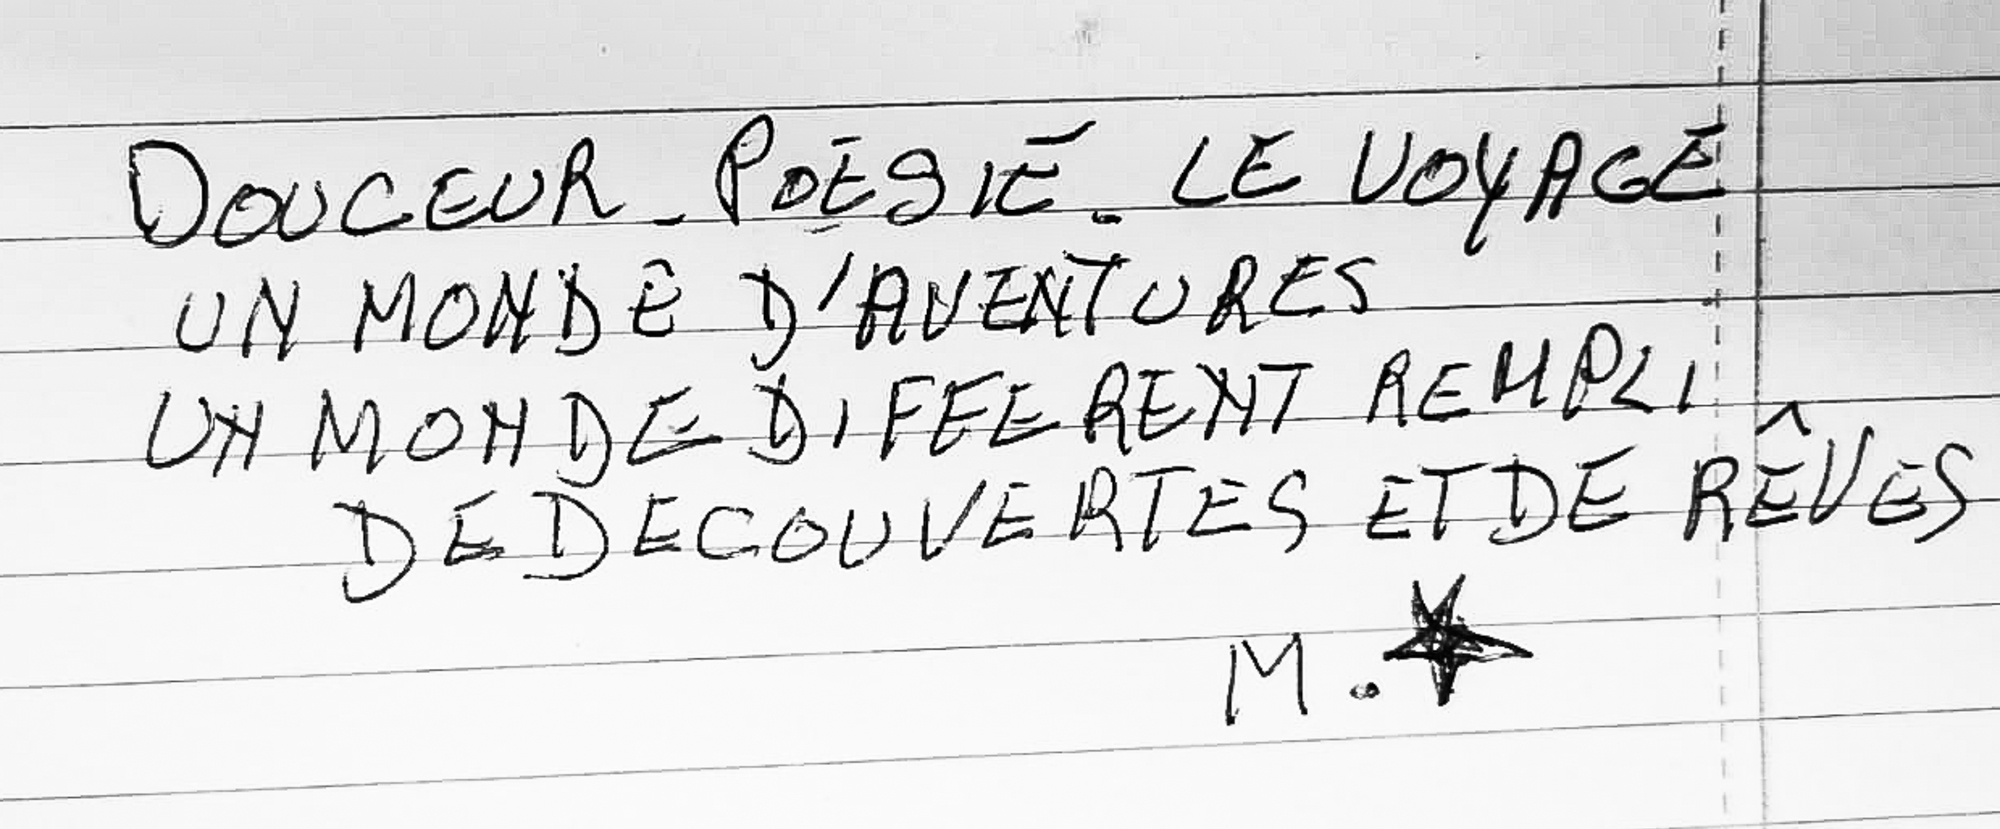 DOUCEUR - POESIE. LE VOYAGE
UN MONDE D'AVENTURES
UN MONDE DIFFERENT REMPLI
DE DECOUVERTES ET DE RÊVES
M.